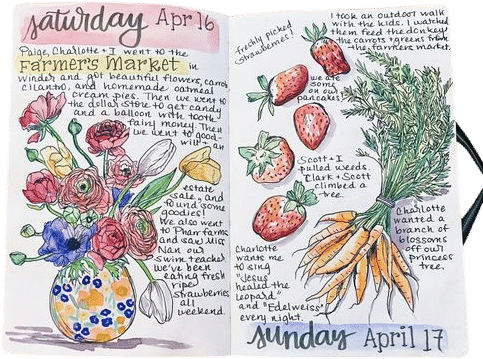 saturday Apr 16
Paige, Charlotte + I went to the
Farmer's Market in
winder and got beautiful flowers, carrots
cilantro, and homemade oatmeal
cream pies. Then we went to
the dollar store to get candy
and a balloon with tooth
fairy money. Then
we went to good-
will + an
estate
sale, and
found some
goodies!
We also went
to Pharr farms
and saw Miss
Nan our
swim teacher
we've been
eating fresh
ripe
strawberries
all
weekend.
freshly picked
strawberries!
I took an outdoor walk
with the kids. I watched
them feed the donkey
the carrots + greens from
the farmers market.
we ate
some
on our
pancakes!
Scott + I
pulled weeds.
Clark + Scott
climbed a
tree.
Charlotte
wanted a
branch of
blossoms
off our
princess
tree.
Charlotte
wants me
to sing
"Jesus
healed the
leopard"
and "Edelweiss"
every night.
sunday April 17